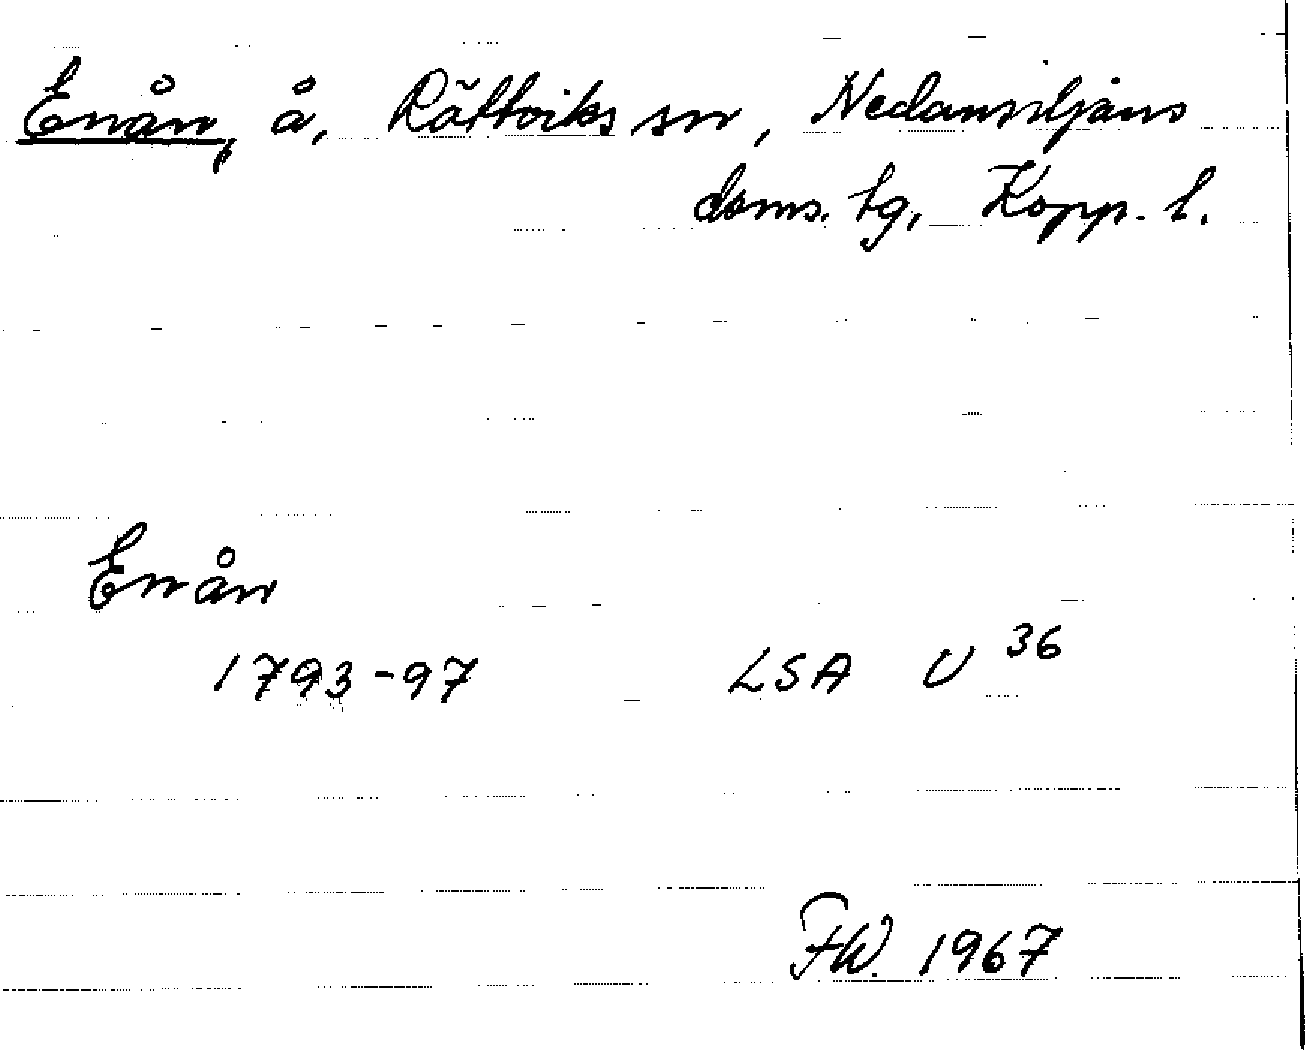 Enån, å, Rättviks sn, Nedansiljans
doms. tg, Kopp. l.
Enån
1793-97 LSA U 36
FW. 1967